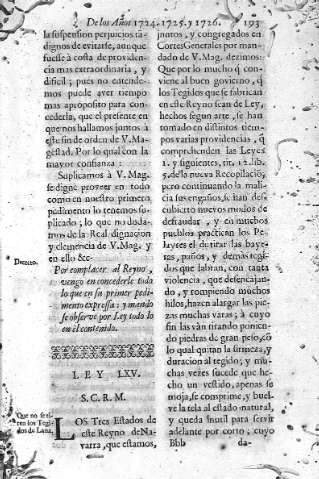 De los Años 1724. 1725. y 1726. 193
la suspension perjuicios tã
dignos de evitarse, aunque
fuesse à costa de providen-
cia mas extraordinaria, y
dificil; pues no entende-
mos puede aver tiempo
mas aproposito para con-
cederla, que el presente en
que nos hallamos juntos à
este fin de orden de V.Ma-
gestad. Por lo qual con la
mayor confianza:
Suplicamos à V. Mag.
se digne proveer en todo
como en nuestro primero
pedimento lo tenemos su-
plicado; lo que no duda-
mos de la Real dignacion
y clemencia de V. Mag. y
en ello &c.
Decreto.
Por complacer al Reyno,
vengo en concederle todo
lo que en su primer pedi-
mento expressa: y mando
se observe por Ley todo lo
en el contenido.
LEY LXV.
S. C. R. M.
Que no se ti-
ren los Tegi-
dos de Lana.
LOS Tres Estados de
este Reyno de Na-
varra, que estamos,
juntos, y congregados en
Cortes Generales por man-
dado de V.Mag. dezimos:
Que por lo mucho q̃ con-
viene al buen govierno, q̃
los Tegidos que se fabrican
en este Reyno sean de Ley,
hechos segun arte, se han
tomado en distintos tiem-
pos varias providencias, q̃
comprehenden las Leyes
1. y siguientes, tit. 12. lib.
5. de la nueva Recopilaciõ,
pero continuando la mali-
cia sus engaños, se han des-
cubierto nuevos modos de
defraudar, y en muchos
pueblos practican los Pe-
layres el dutirar las baye-
tas, paños, y demàs tegi-
dos que labran, con tanta
violencia, que desencajan-
do, y rompiendo muchos
hilos, hazen alargar las pie-
zas muchas varas; à cuyo
fin las vàn tirando ponien-
do piedras de gran peso, cõ
lo qual quitan la firmeza, y
duracion al tegido; y mu-
chas vezes sucede que he-
cho un vestido, apenas se
moja, se comprime, y buel-
ve la tela al estado natural,
y queda inutil para servir
adelante por corto; cuyo
Bbb da-